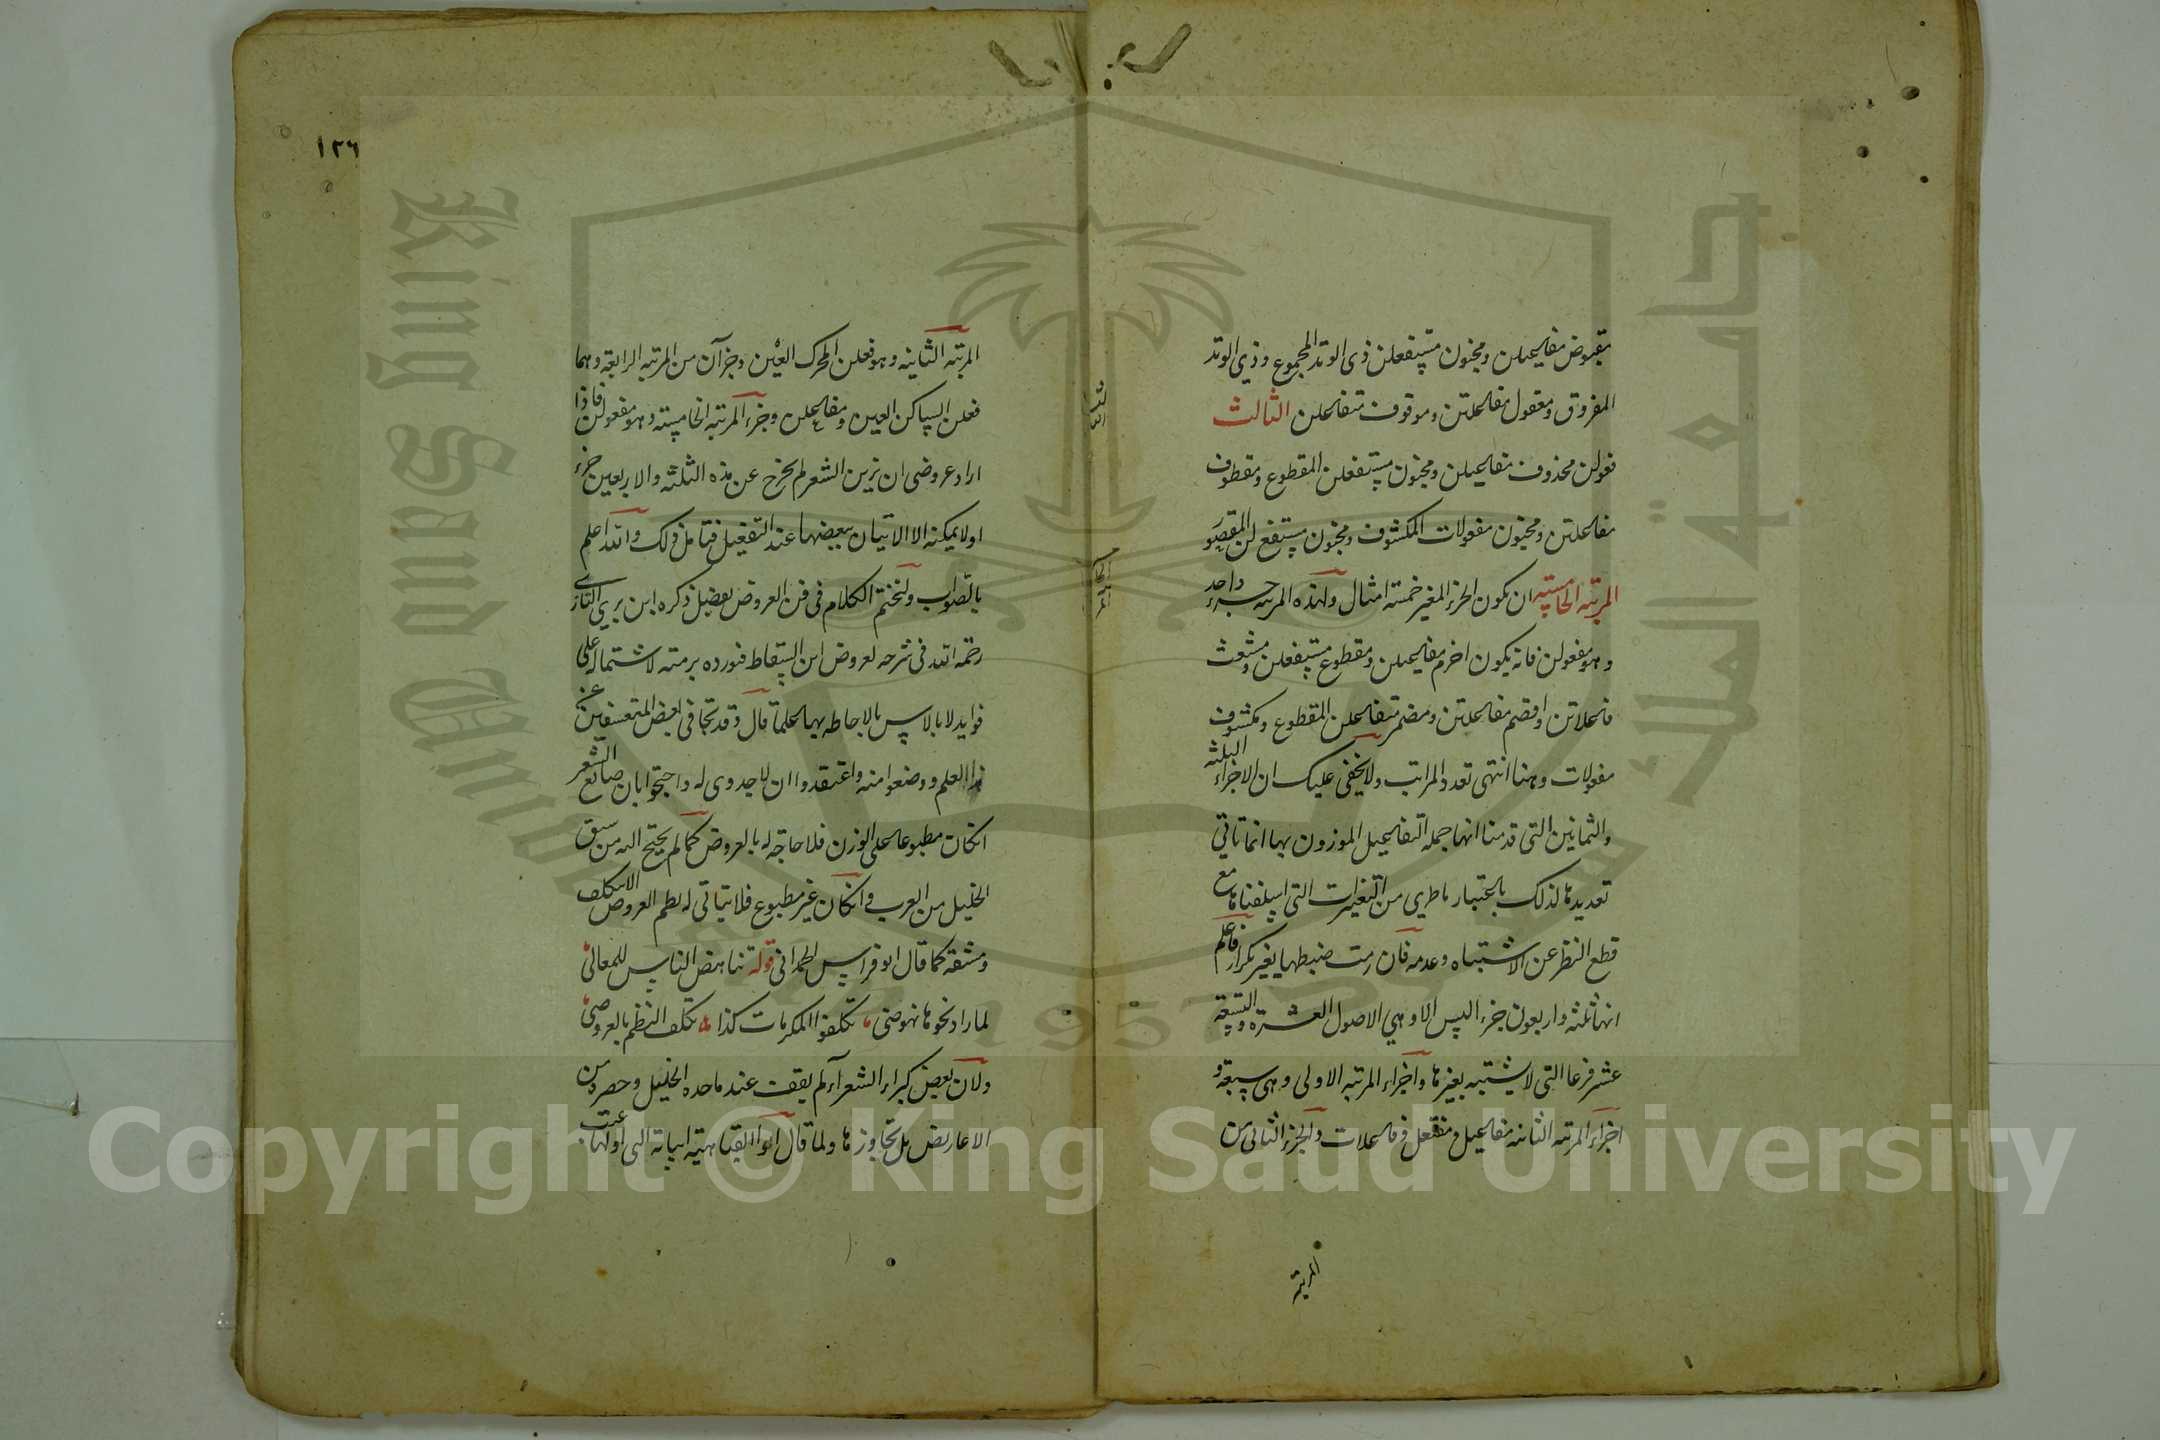 مقبوض مفاعيلن ومخبون مستفعلن ذى الوتد المجموع وذي الوتد
المفروق ومعقول مفاعلتن وموقوف متفاعلن الثالث
فعولن محذوف مفاعيلن ومخبون مستفعلن المقطوع ومقطوف
مفاعلتن ومخبون مفعولات المكشوف ومخبون مستفع لن المقصور
المرتبه الخامسته ان يكون الجزء المغير خمسة امثال ولهذه المرتبه جزء واحد
وهو مفعولن فانه يكون اخرم مفاعيلن ومقطوع مستفعلن ومشعث
فاعلاتن واقصم مفاعلتن ومضمر متفاعلن المقطوع ومكشوف
مفعولات وهنا انتهى تعدد المراتب ولا يخفى عليك ان الاجزاء الثلثه
والثمانين التى قدمنا انها جمله التفاعيل الموزون بها انما تاتي
تعديدها لذلك باعتبار ما طرى من التغيرات التى اسلفناها مع
قطع النظر عن الاشتباه وعدمه فان رمت ضبطها بغير تكرار فاعلم
انها ثلثه واربعون جزء اليس الا وهي الاصول العشرة والتسعة
عشر فرعا التى لا يشتبه بغيرها واجزاء المرتبه الاولى وهى سبعة و
اجزاء المرتبه الثانيه مفاعيل و مفتعل و فاعلات والجزء الثانى من
المرتبه
١٢٦
المرتبه الثانيه وهو فعلن المحرك العين وجزآن من المرتبه الرابعة وهما
فعلن الساكن العين ومفاعلن وجزء المرتبه الخامسته وهو مفعولن فاذا
اراد عروضى ان يزين الشعر لم يخرج عن هذه الثلثه والاربعين جزء
اولا يمكنه الا الاتيان ببعضها عند التفعيل فتامل ذلك والله اعلم
بالصواب ولنختم الكلام فى فن العروض بفصل ذكره ابن بري التازى
رحمه الله فى شرحه لعروض ابن السقاط فنورده برمته لاشتماله على
فوايد لا باس بالاحاطه بها علما قال وقد تجافى بعض المتعسفين عن
هذا العلم ووضعوا منه واعتقدوا ان لا جدوى له واحتجوا بان صانع الشعر
انكان مطبوعا على الوزن فلا حاجة له بالعروض كما لم يحتج اليه من سبق
الخليل من العرب وانكان غير مطبوع فلا يتاتى له نظم العروض الا بتكلف
ومشقه كما قال ابو فراس الحمدانى قوله تناهض الناس للمعالى
لما رادنحوها نهوضى تكلفوا المكرمات كذا تكلف النظم بالعروض
ولان بعض كبراء الشعرآء لم يقف عند ما حده الخليل وحصره من
الاعاريض بل تجاوزها ولما قال ابو العتاهية ابياته التى اولها عتب